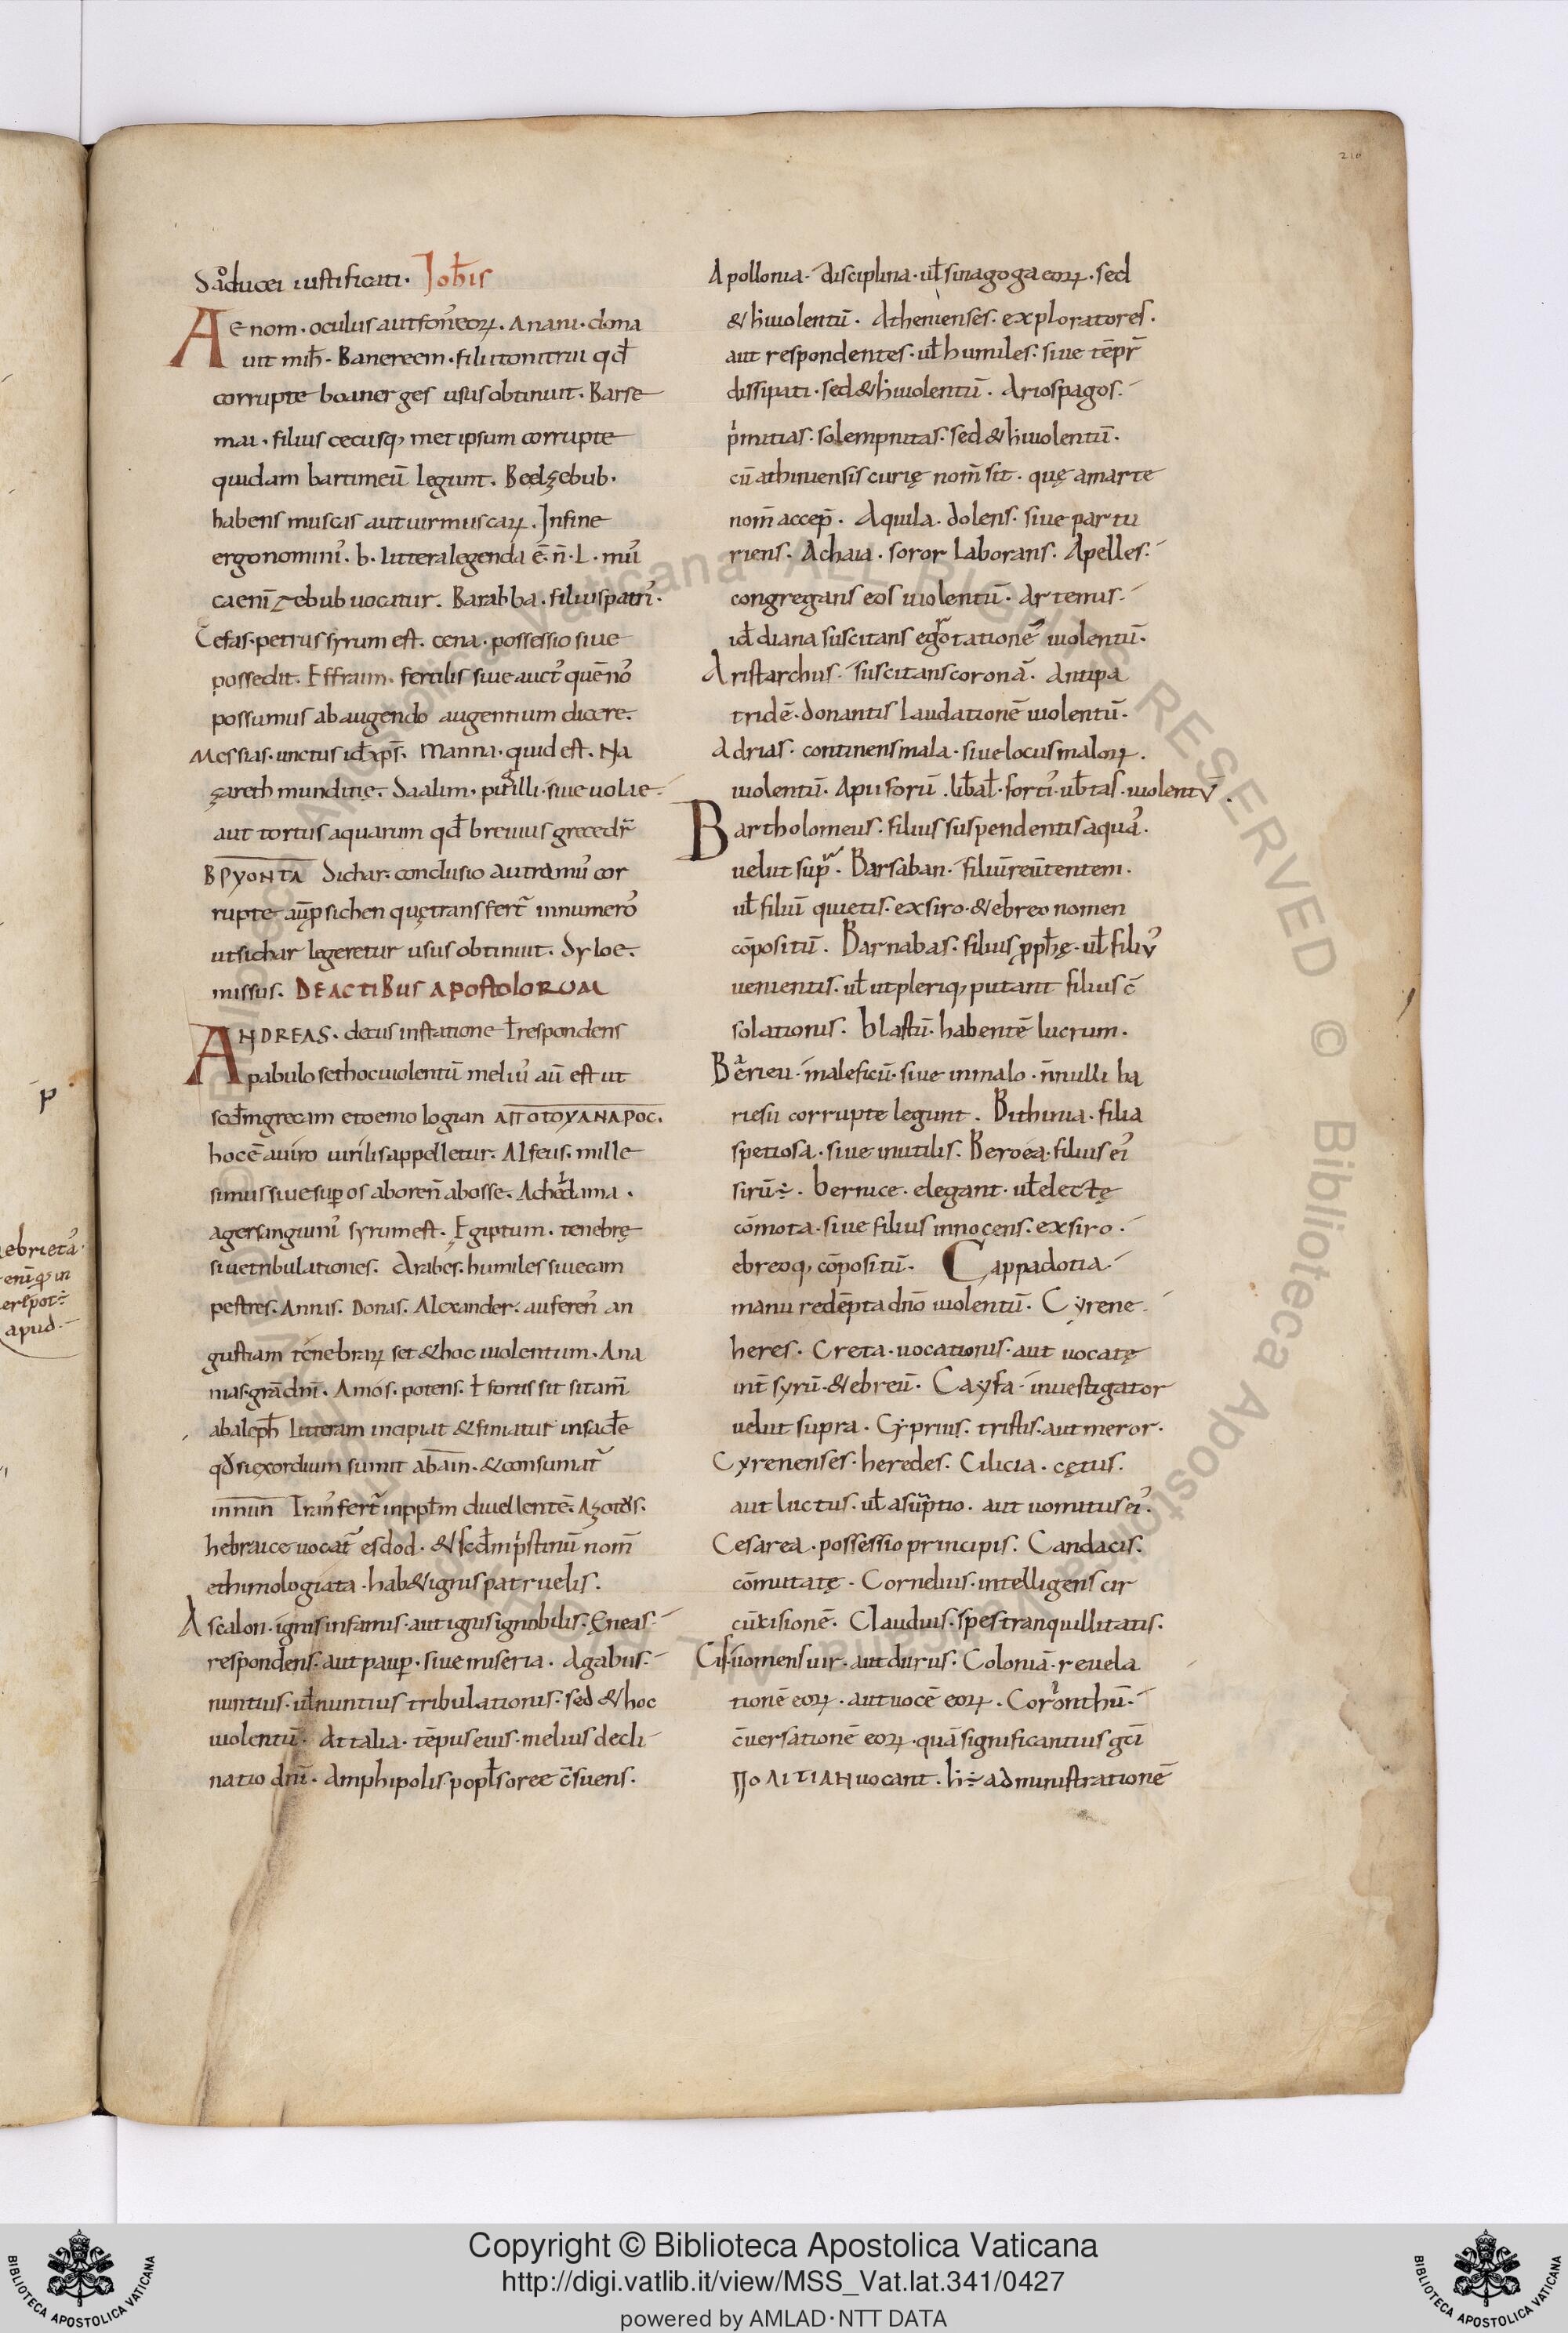 210
Saducei iustificati. Ioħis
Aenom. oculus aut fons̄ eoꝝ. Anani. dona
uit mih̄. Banereem. filii tonitrui qđ
corrupte boanerges usus obtinuit. Barse
mai. filius cecusq; met ipsum corrupte
quidam bartimeū legunt. Beelzebub.
habens muscas aut uir muscaꝝ. In fine
ergo nominis. b. littera legenda ē. n̄. L. mu
caenī zebub uocatur. Barabba. filius patris.
Cefas. petrus syrum est. cena. possessio siue
possedit. Effraim. fertilis siue auctus quē nos
possumus ab augendo augentium dicere.
Messias. unctus idˈ xp̄s. Manna. quid est. Na
zareth munditię. Saalim. pugilli. siue uolae
aut tortus aquarum qđ breuius grece dr̄
ΒΡΥΟΝΤΑ Sichar. conclusio aut ramus cor
rupte aūp sichen quę transfert in numeros
ut sichar legeretur usus obtinuit. Syloe.
missus. DE ACTIBUS APOSTOLORUM
ANDREAS. decus in statione ł respondens
pabulo set hoc uiolentū melius aū est ut
scđm grecam etoemologian ΑΠΟΤΟΥΑΝΑΡΟC.
hoc ē a uiro uirilis appelletur. Alfeus. mille
simus siue sup os ab oren̄ ab osse. Acheldama.
ager sanguinis syrum est. Egiptum. tenebrę
siue tribulationes. Arabes. humiles siue cam
pestres. Annas. Donas. Alexander. auferens an
gustiam tenebraꝝ set & hoc uiolentum. Ana
nias. gr̄a dn̄i. Amos. potens. ł fortis sit si tam̄
ab aleph̄ litteram incipiat & finiatur in sađe
qđ si exordium sumit ab ain. & consumat̄
in nun Transfert̄ in ppłm diuellentē. Azotus.
hebraice uocat̄ esdod. & scđm pristinū nom̄
ethimologiata. hab& ignis patruelis.
Ascalon. ignis infamis. aut ignis ignobilis. Eneas.
respondens. aut paup. siue miseria. Agabus.
nuntius. uł nuntius tribulationis. sed & hoc
uiolentū. Attalia. tēpus eius. melius decli
natio dn̄i. Amphipolis. popłs ore c̄suens.
Apollonia. disciplina. uł sinagoga eoꝝ. sed
& h uiolentū. Athenienses. exploratores.
aut respondentes. uł humiles. siue tēpr̄
dissipati. sed & h uiolentū. Ariospagos.
pimitias. solempnitas. sed & h uiolentū.
cū athiniensis curię nom̄ sit. quę a marte
nom̄ accep̄. Aquila. dolens. siue partu
riens. Achaia. soror laborans. Apelles.
congregans eos uiolentū. Artemis.
idˈ diana suscitans egrotationē uiolentū.
Aristarchus. suscitans coronā. Antipa
tridē. donantis laudationē uiolentū.
Adrias. continens mala. siue locus maloꝝ.
uiolentū. Apii forū. libał. fortis ub̄tas. uiolentū.
Bartholomeus. filius suspendentis aquas.
uelut supra. Barsaban. filiū reūtentem.
uł filiū quietis. ex siro. & ebreo nomen
cōpositū. Barnabas. filius ppħę. uł filius
uenientis. uł ut pleriq; putant filius c̄
solationis. Blastū. habentē lucrum.
Berieu. maleficū. siue in malo. n̄nulli ba
riesu corrupte legunt. Bithinia. filia
spetiosa. siue inutilis. Beroea. filius eius
sirū ÷. Bernice. elegant. uł electę
cōmota. siue filius innocens. ex siro.
ebreoq; cōpositū. Cappadotia.
manu redēpta dn̄o uiolentū. Cyrene.
heres. Creta. uocationis. aut uocatę
int̄ syrū. & ebreū. Cayfa. inuestigator
uelut supra. Cyprius. tristis. aut meror.
Cyrenenses. heredes. Cilicia. cętus.
aut luctus. uł asūptio. aut uomitus eius.
Cesarea. possessio principis. Candacis.
cōmutatę. Cornelius. intelligens cir
cūcisionē. Claudius. spes tranquillitatis.
Cis. uomens uir. aut durus. Coloniā. reuela
tionē eoꝝ. aut uocē eoꝝ. Corinthū.
c̄uersationē eoꝝ. quā significantius gcī
ΠΟΛΙΤΙΑΝ uocant. h ÷ administrationē
ebrietas
apud.
Copyright © Biblioteca Apostolica Vaticana
http://digi.vatlib.it/view/MSS_Vat.lat.341/0427
powered by AMLAD·NTT DATA